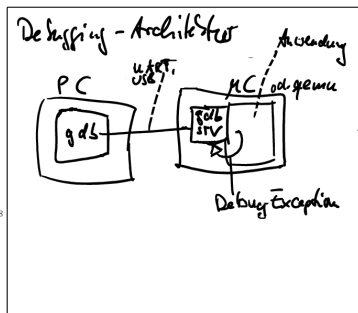 Debugging - Architektur
Anwendung
UART,
USB
PC
µC od. qemu
gdb
gdb
srv
Debug Exception